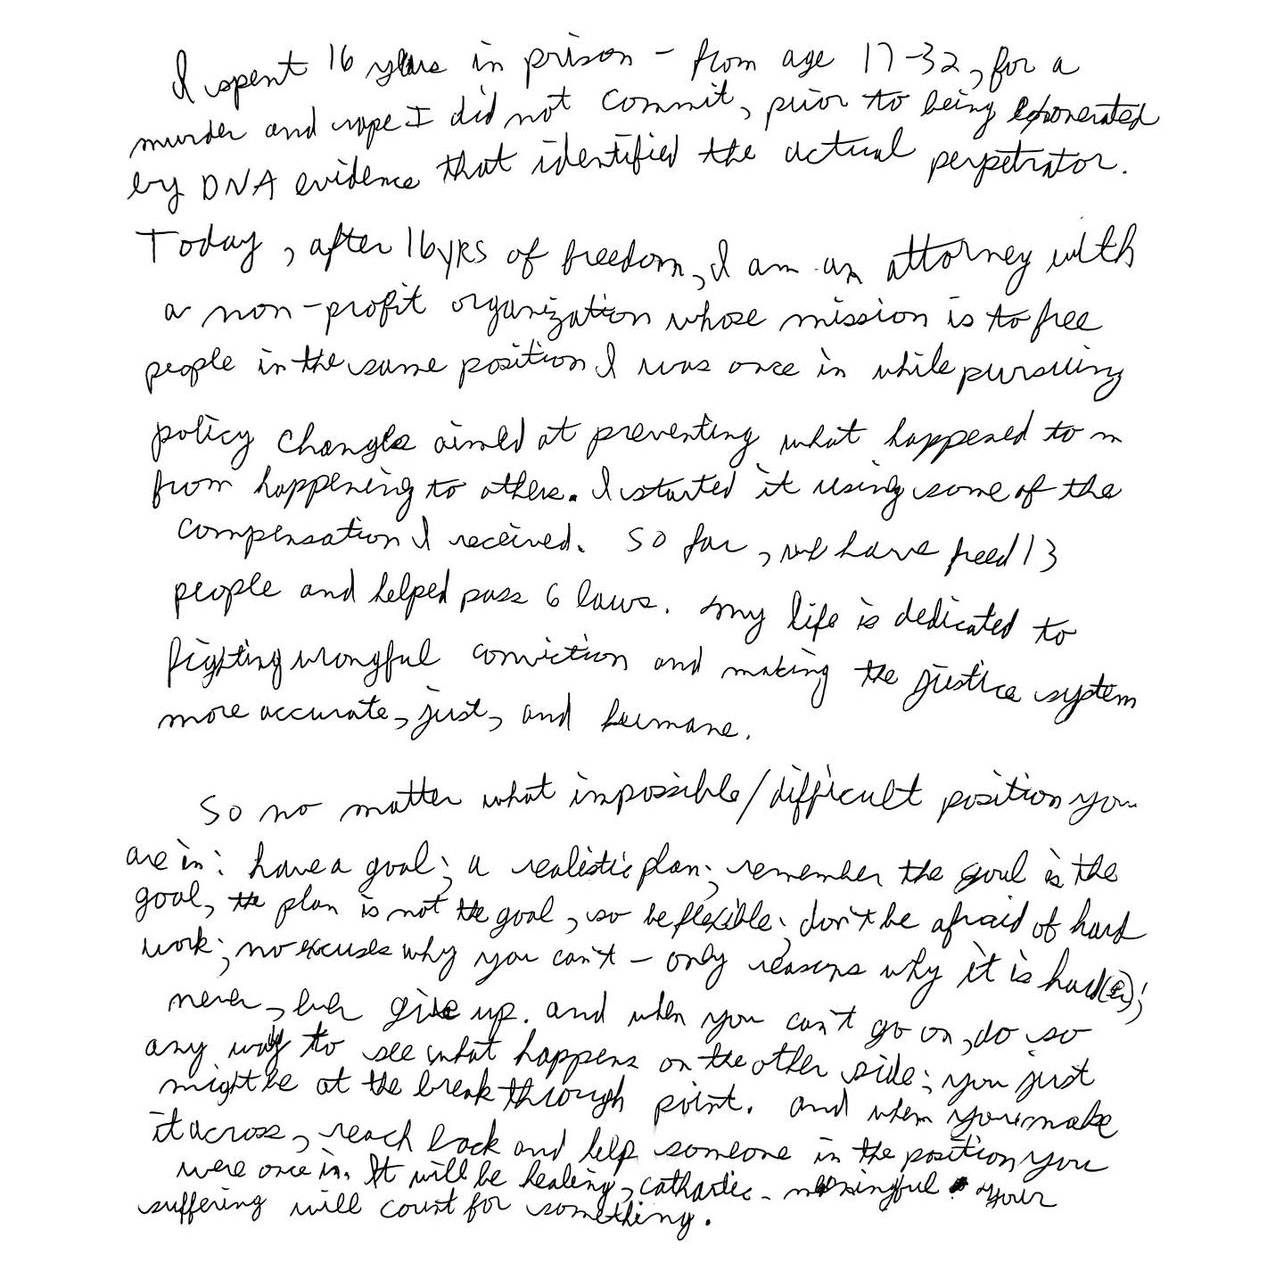 I spent 16 years in prison - from age 17-32, for a
murder and rape I did not commit, prior to being exonerated
by DNA evidence that identified the actual perpetrator.
Today, after 16yrs of freedom, I am an attorney with
a non-profit organization whose mission is to free
people in the same position I was once in while pursuing
policy changes aimed at preventing what happened to m
from happening to others. I started it using some of the
compensation I received. So far, we have freed 13
people and helped pass 6 laws. My life is dedicated to
fighting wrongful conviction and making the justice system
more accurate, just, and humane.
So no matter what impossible/difficult position you
are in: have a goal; a realistic plan; remember the goal is the
goal, the plan is not the goal, so be flexible; don't be afraid of hard
work; no excuses why you can't - only reasons why it is hard(er);
never, ever give up. and when you can't go on, do so
any way to see what happens on the other side; you just
might be at the break through point. and when you make
it across, reach back and help someone in the position you
were once in. It will be healing, cathartic - meaningful your
suffering will count for something.